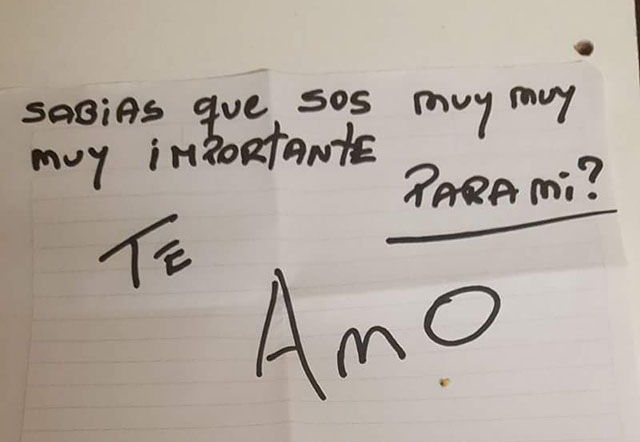 SABiAS que SOS muy muy
muy iMPORTANTE
PARA mi?
TE
AmO